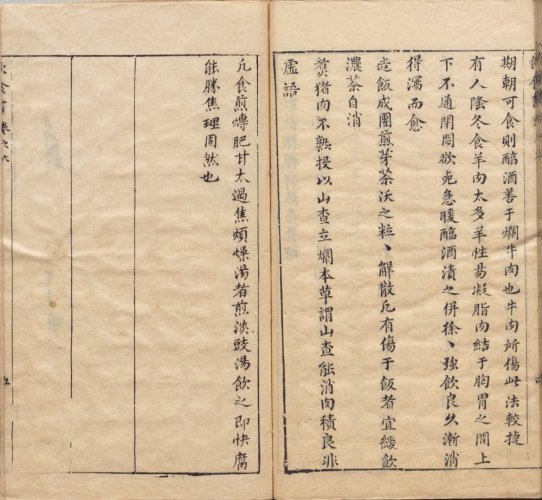 期朝可食則醞酒善于爛牛肉也牛肉所傷此法較捷
有人隆冬食羊肉太多羊性易凝脂肉結于胸胃之間上
下不通閉悶欲死急暖醞酒漬之併徐、強飲良久漸消
得瀉而愈
飯成團煎芽茶沃之粒、解散凡有傷于飯者宜緩飲
濃茶自消
煑猪肉不熟投以山查立爛本草謂山查能消肉積良非
虛語
凡食煎煿肥甘太過焦煩燥渴者煎淡豉湯飲之即快腐
能勝焦理固然也
五